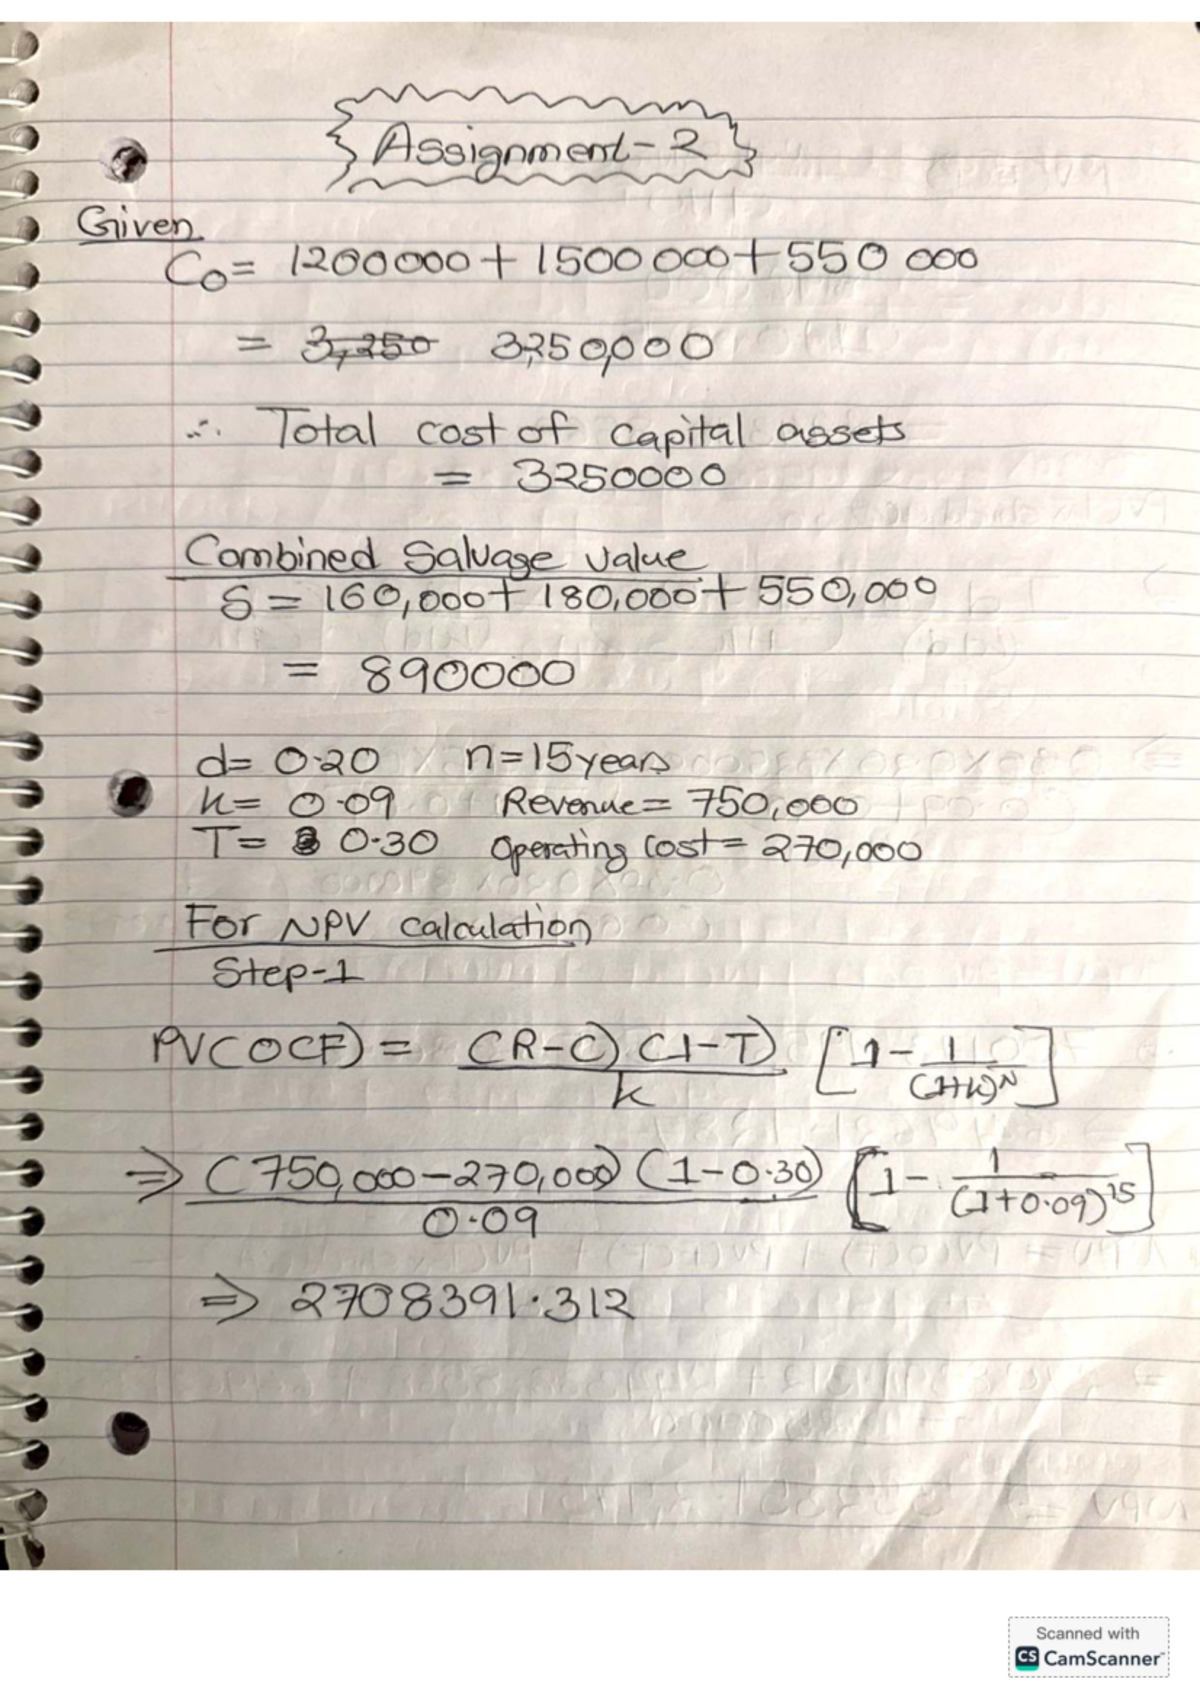 Assignment-2
Given
C0= 1200000+1500000+550 000
= 3,250 3250,000
∴ Total cost of capital assets
= 3250000
Combined Salvage value
S = 160,000+ 180,000+ 550,000
= 890000
d= 0.20 n=15years
k= 0.09 Revenue= 750,000
T= 0.30 Operating Cost= 270,000
For NPV calculation
Step-1
PV(OCF) = (R-C) (1-T) / k [1- 1/(1+k)^N]
⇒ (750,000-270,000) (1-0.30) / 0.09 [1- 1/(1+0.09)^15]
⇒ 2708391.312
Scanned with
CS CamScanner